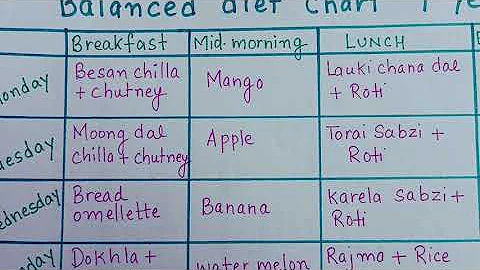 Balanced diet chart
Breakfast Mid-morning LUNCH
Monday Besan chilla + chutney Mango Lauki chana dal + Roti
Tuesday Moong dal chilla + chutney Apple Torai Sabzi + Roti
Wednesday Bread omellette Banana Karela Sabzi + Roti
Dokhla + water melon Rajma + Rice